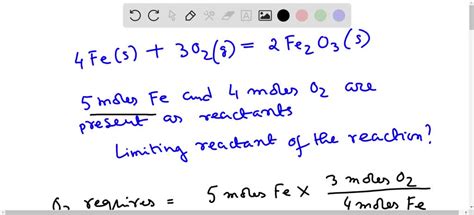 4Fe(s) + 3O₂(g) = 2Fe₂O₃(s)
5 moles Fe and 4 moles O₂ are
present as reactants
Limiting reactant of the reaction?
O₂ requires = 5 moles Fe × 3 moles O₂
4 moles Fe